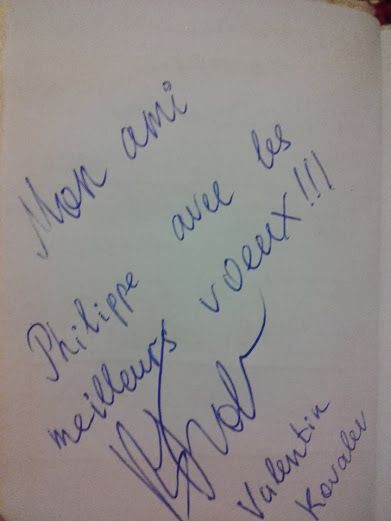 Mon ami
Philippe avec les
meilleurs voeux!!!
Valentin
Kovalev